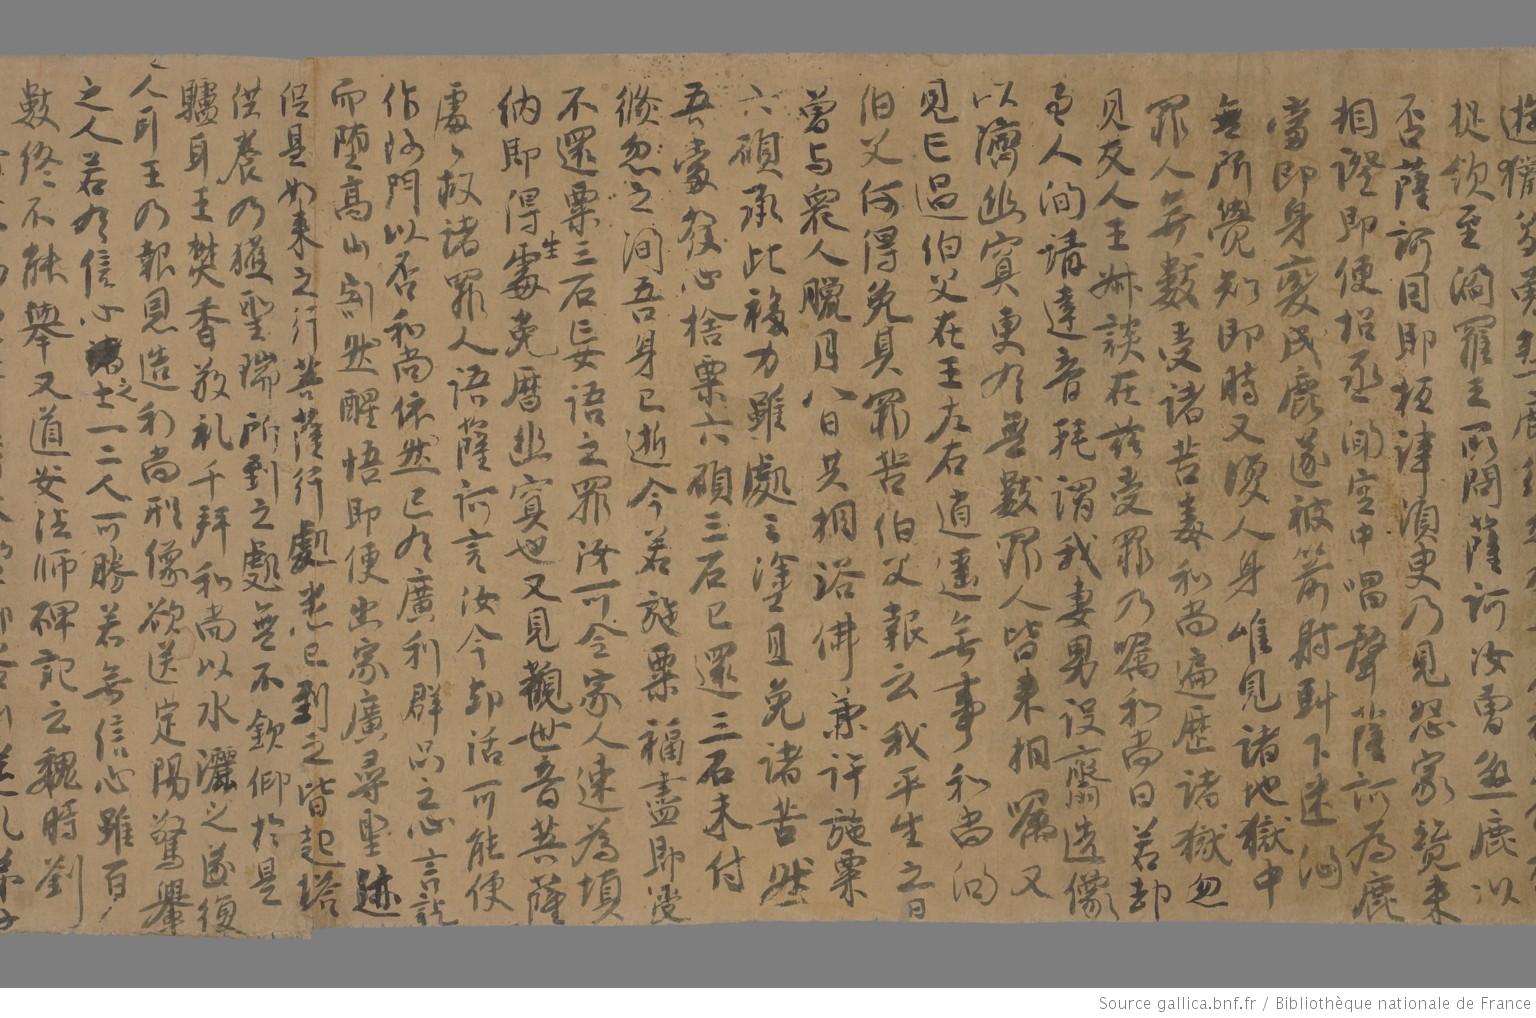 捉領至閻羅王所問薩訶汝曽煞鹿以
否薩訶因即抵諱須臾乃見怨家競来
相證即便招丞聞空中唱聲薩訶為鹿
當即身變成鹿遂被箭射肚下迷悶
無所覺知即時又復人身唯見諸地獄中
罪人無數受諸苦毒和尚遍歴諸獄忽
見友人王叔談在兹受罪乃嘱和尚曰若却
至人間請達音耗謂我妻男設齋造像
以濟幽冥更有無數罪人皆来相嘱又
見亡過伯父在王左右逍遥無事和尚問
伯父何得免其罪苦伯父報云我平生之日
曽与衆人臈月八日共相浴佛兼許施粟
六碩承此福力雖處三塗且免諸苦然
吾當發心捨粟六碩三石已還三石未付
倏忽之間吾身已逝今若施粟福盡即受
不還粟三石妄語之罪汝可令家人速為填
納即得生處免曆幽冥也又見觀世音菩薩
處々救諸罪人語薩訶言汝今却活可能便
作沙門以否和尚依然已有廣利群品之心言訖
而堕高山豁然醒悟即便出家廣尋聖跡
但是如来之行菩薩行處悉已到之皆起塔
供養乃獲聖瑞所到之處無不欽仰於是
驢耳王焚香敬礼千拜和尚以水灑之遂復
人耳王乃報恩造和尚形像欲送定陽擧
之人若有信心之士一二人可勝若無信心雖百
數終不能擧又道安法師碑記云魏時劉